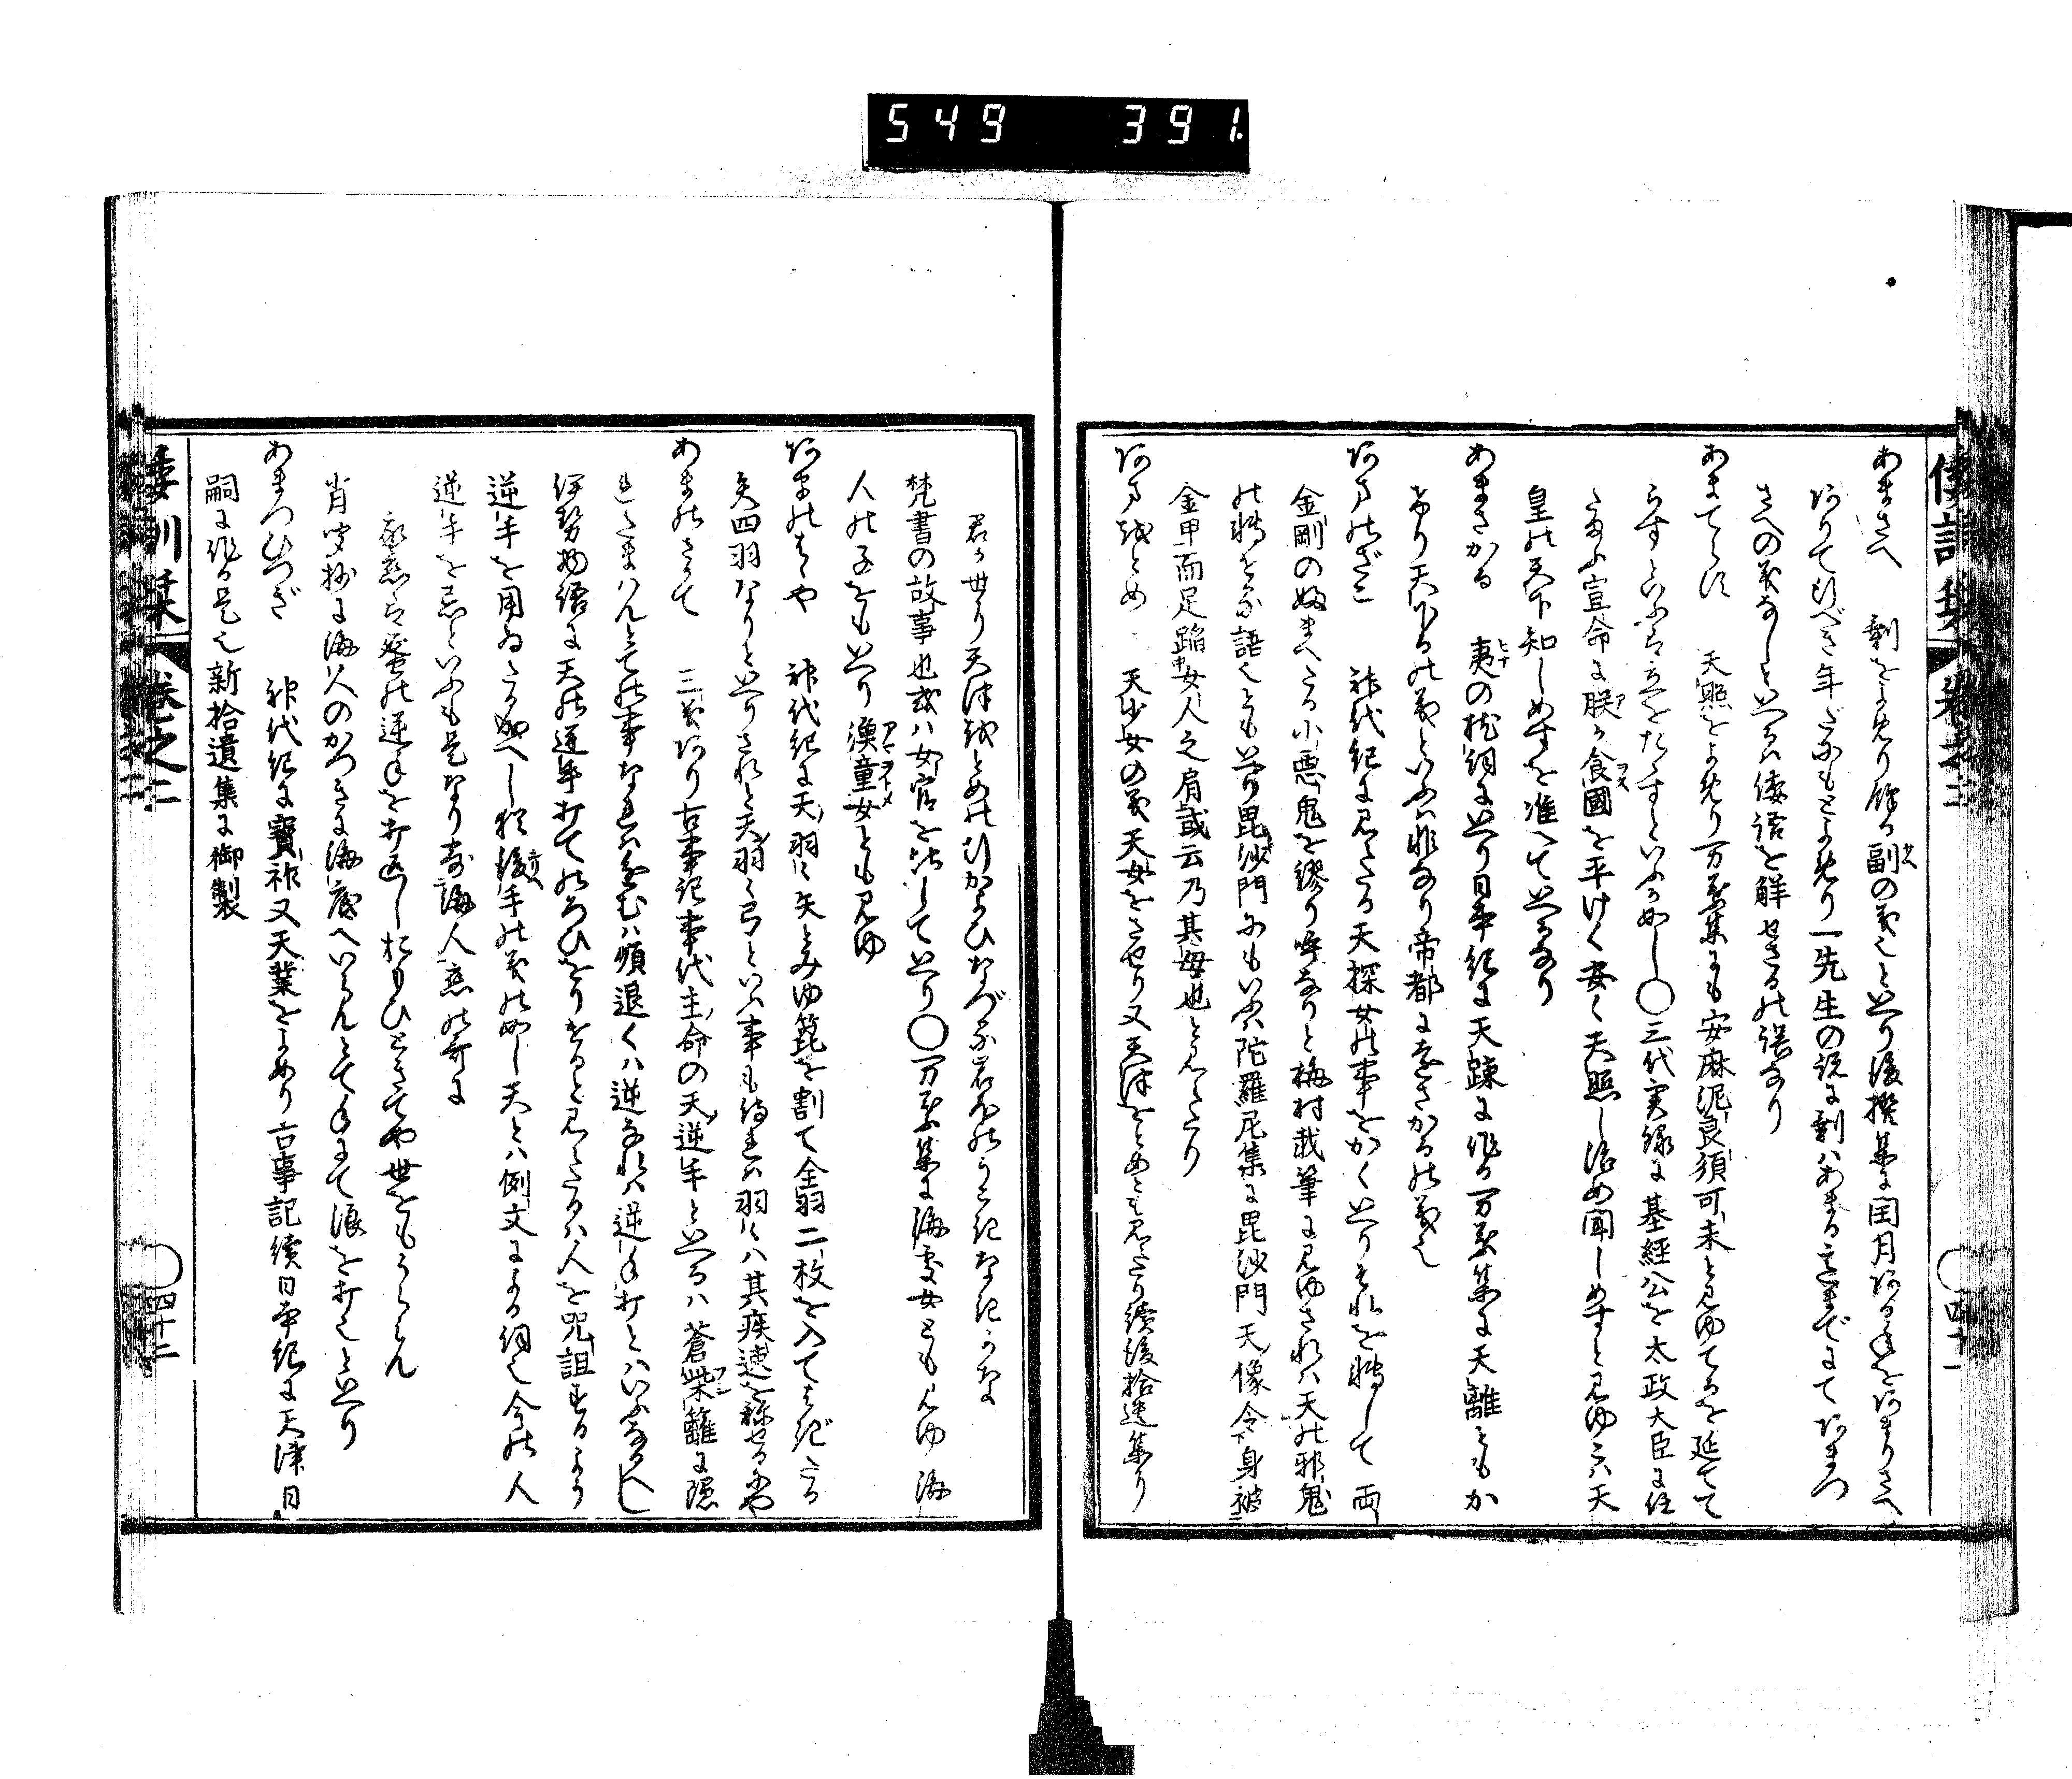 549 391
倭訓栞 卷之二 四十一
あまさへ 剰をよめり餘り副の義也といへり後撰集に閏月ある年をあまりさへ
ありて行べき年だにもとよめり一先生の説に剰はあまる也までにてあまつ
さへの義なしといへるは倭語を解せざるの誤なり
あまてらす 天照をよめり万葉集にも安麻泥良須可未と見ゆてるを延てて
らすといふは立をたたすといふか如し〇三代実録に基經公を太政大臣に任
たまふ宣命に朕か食國を平けく安く天照し治め聞しめすと見ゆこは天
皇の天下知しめすを准へていへるなり
あまさかる 夷の枕詞にいへり日本紀に天疎に作る万葉集に天離ともか
けり天下るの義といふは非なり帝都に遠さかるの義也
あまのざこ 神代紀に見えたる天探女の事をかくいへりそれを轉して両
金剛の如まへたる小悪鬼を謬り呼なりと梅村載筆に見ゆされは天の邪鬼
の轉せる語くともいへり毘沙門にもいふは陀羅尼集に毘沙門天像令身被
金甲而足蹈女人之肩或云乃其母也と見えたり
あまをとめ 天少女の義天女をさせり又天津をとめとも見えたり續後拾遺集り
君か世り天津をとめの行かよひなづる岩ほのうこきなきかな
梵書の故事也或は女官を比していへり〇万葉集に海處女とも見ゆ 海
人の子をもいへり漁童女とも見ゆ
あまのはや 神代紀に天羽々矢とみゆ箆を割て全羽二枚を入てはぎたる
矢四羽なりといへりされと天羽々弓といふ事も侍れは羽々は其疾速を稱せるにや
あまのさかて 三義あり古事記事代主命の天逆手といへるは蒼柴籬に隠
れたまはんとての事なれは食むは順退くは逆なれは逆手打とはいふなるへし
伊勢物語に天の逆手打てのろひをりけると見えたるは人を咒詛するより
逆手を用ゐたる如へし猶後手の義の如し天とは例文による詞也今の人
逆手を忌といふも是なり寄海人恋の哥に
我恋は蜑の逆手を打返しおもひときてや世をもうらみん
肖聞抄に海人のかつきに海底へいらんとて手にて浪を打也といへり
あまつひつぎ 神代紀に寶祚又天業をよめり古事記續日本紀に天津日
嗣に作る是也新拾遺集に御製
倭訓栞 卷之二 四十二